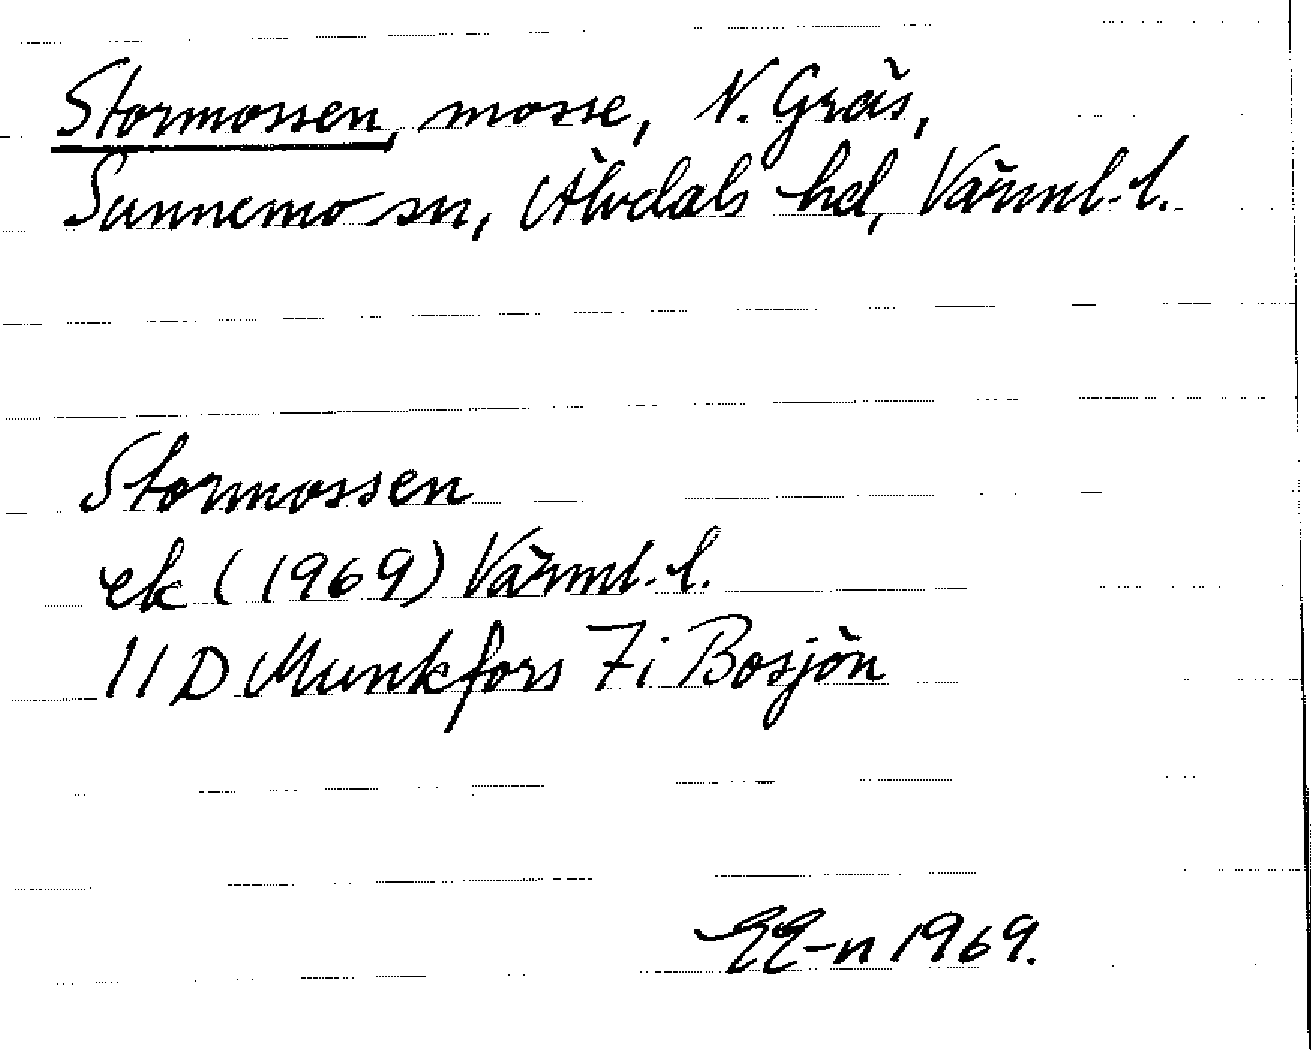 Stormossen, mosse, N. Gräs,
Sunnemo sn, Älvdals hd, Värml. l.
Stormossen
ek (1969) Värml. l.
11 D Munkfors 7i Bosjön
EE-n 1969.